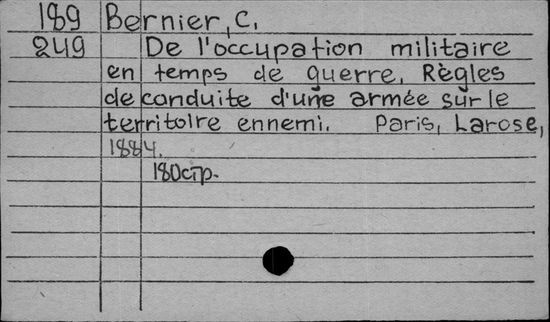 189 Bernier, C.
249 De l'occupation militaire
en temps de guerre. Règles
de conduite d'une armée sur le
territoire ennemi. Paris, Larose,
1884.
180 стр.